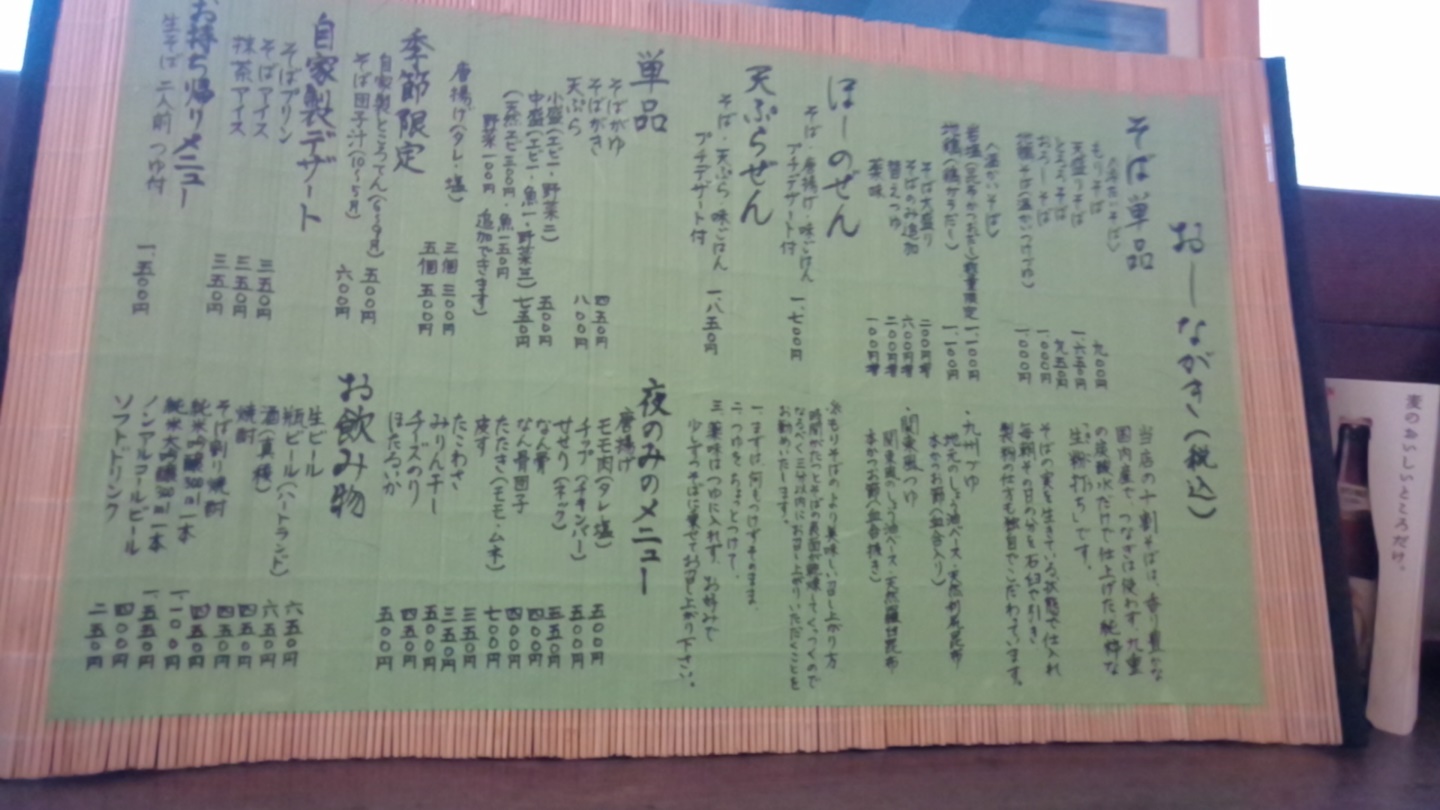 おーしながき(税込)
そば単品
(冷たいそば)
もりそば 九〇〇円
天盛りそば 一、六五〇円
とろろそば 九五〇円
おろしそば 一、〇〇〇円
一、〇〇〇円
(温かいそば)
数量限定 一、一〇〇円
地鶏(鶏ガラだし) 一、一〇〇円
そば大盛り 二〇〇円増
そばのみ追加 六〇〇円増
替えつゆ 二〇〇円増
薬味 一〇〇円増
ほーのぜん
そば・唐揚げ・味ごはん
プチデザート付 一、七〇〇円
天ぷらぜん
そば・天ぷら 味ごはん
プチデザート付 一、八五〇円
単品
そばがゆ 四五〇円
そばがき 八〇〇円
天ぷら
小盛(エビ一・野菜二) 五〇〇円
中盛(エビ一・魚一・野菜三) 七五〇円
(天然エビ三〇〇円・魚一五〇円
野菜一〇〇円 追加できます)
唐揚げ(タレ・塩) 三個 三〇〇円
五個 五〇〇円
季節限定
自家製ところてん(6〜9月) 五〇〇円
そば団子汁(10〜5月) 六〇〇円
自家製デザート
そばプリン 三五〇円
そばアイス 三五〇円
抹茶アイス 三五〇円
お持ち帰りメニュー
生そば 二人前 つゆ付 一、五〇〇円
当店の十割そばは、香り豊かな
国内産で、つなぎは使わず、九重
の炭酸水だけで仕上げた純粋な
生粉打ちです。
そばの実を生きている状態で仕入れ
毎朝その日の分を石臼や引き
製粉の仕方も独自でこだわっています。
・九州つゆ
地元のしょう油ベース・天然利尻昆布
本かつお節
・関東風つゆ
関東風のしょう油ベース・天然羅臼昆布
本かつお節
もりそばのより美味しい召し上がり方
時間がたつとそばの表面が乾燥していくので
なるべく三分以内にお召し上がりいただくことを
お勧めいたします。
一、まずは何もつけずそのまま
二、つゆをちょっとつけて、
三、薬味はつゆに入れず、お好みで
少しずつそばに乗せてお召し上がり下さい。
夜のみのメニュー
唐揚げ
モモ肉(タレ・塩) 五〇〇円
チップ(チキンバー) 五〇〇円
せせり(ネック) 五五〇円
なん骨 四〇〇円
なん骨団子 四〇〇円
たたき(モモ・ムネ) 七〇〇円
皮す 三五〇円
たこわさ 三五〇円
みりん干し 五〇〇円
チーズのり 四五〇円
ほたるいか 五〇〇円
お飲み物
生ビール 六五〇円
瓶ビール(ハートランド) 六五〇円
酒(真穂) 四五〇円
焼酎 四五〇円
そば割り焼酎 四五〇円
純米吟醸 一本 一、一〇〇円
純米大吟醸 一本 一、五五〇円
ノンアルコールビール 四〇〇円
ソフトドリンク 二五〇円
麦のおいしいところだけ。